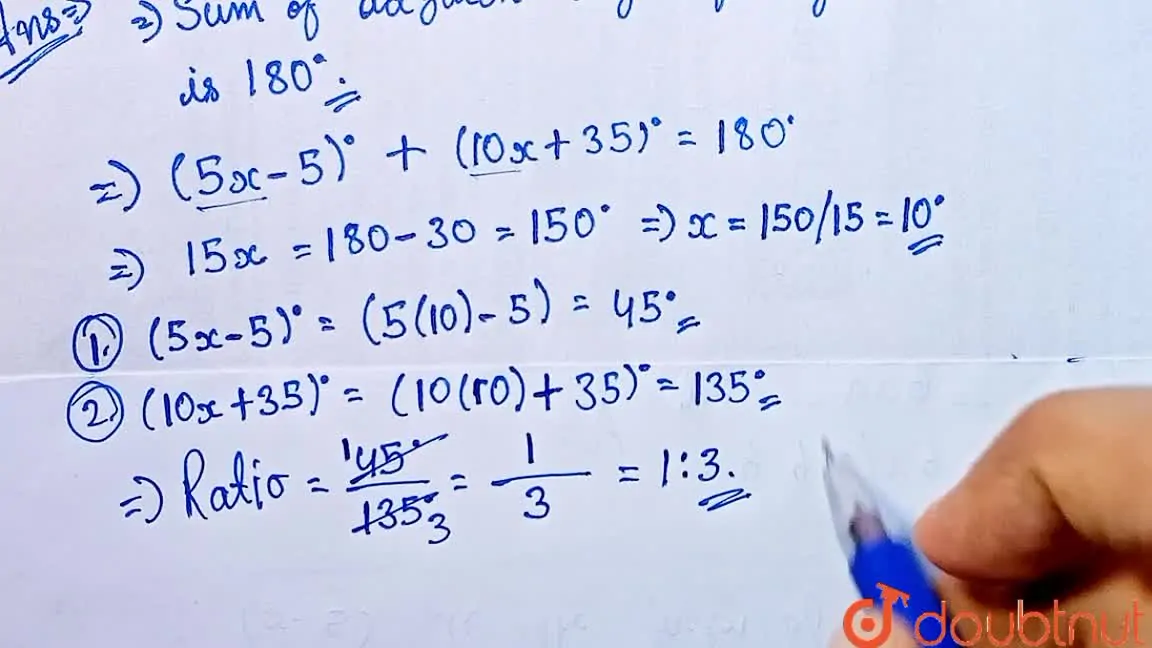 Ans⇒ ⇒) Sum of
is 180°.
⇒) (5x-5)° + (10x+35)° = 180°
⇒) 15x = 180-30 = 150° ⇒) x = 150/15 = 10°
1. (5x-5)° = (5(10)-5) = 45°
2) (10x+35)° = (10(10)+35)° = 135°
⇒) Ratio = 1 45°/135° 3 = 1/3 = 1:3.
doubtnut